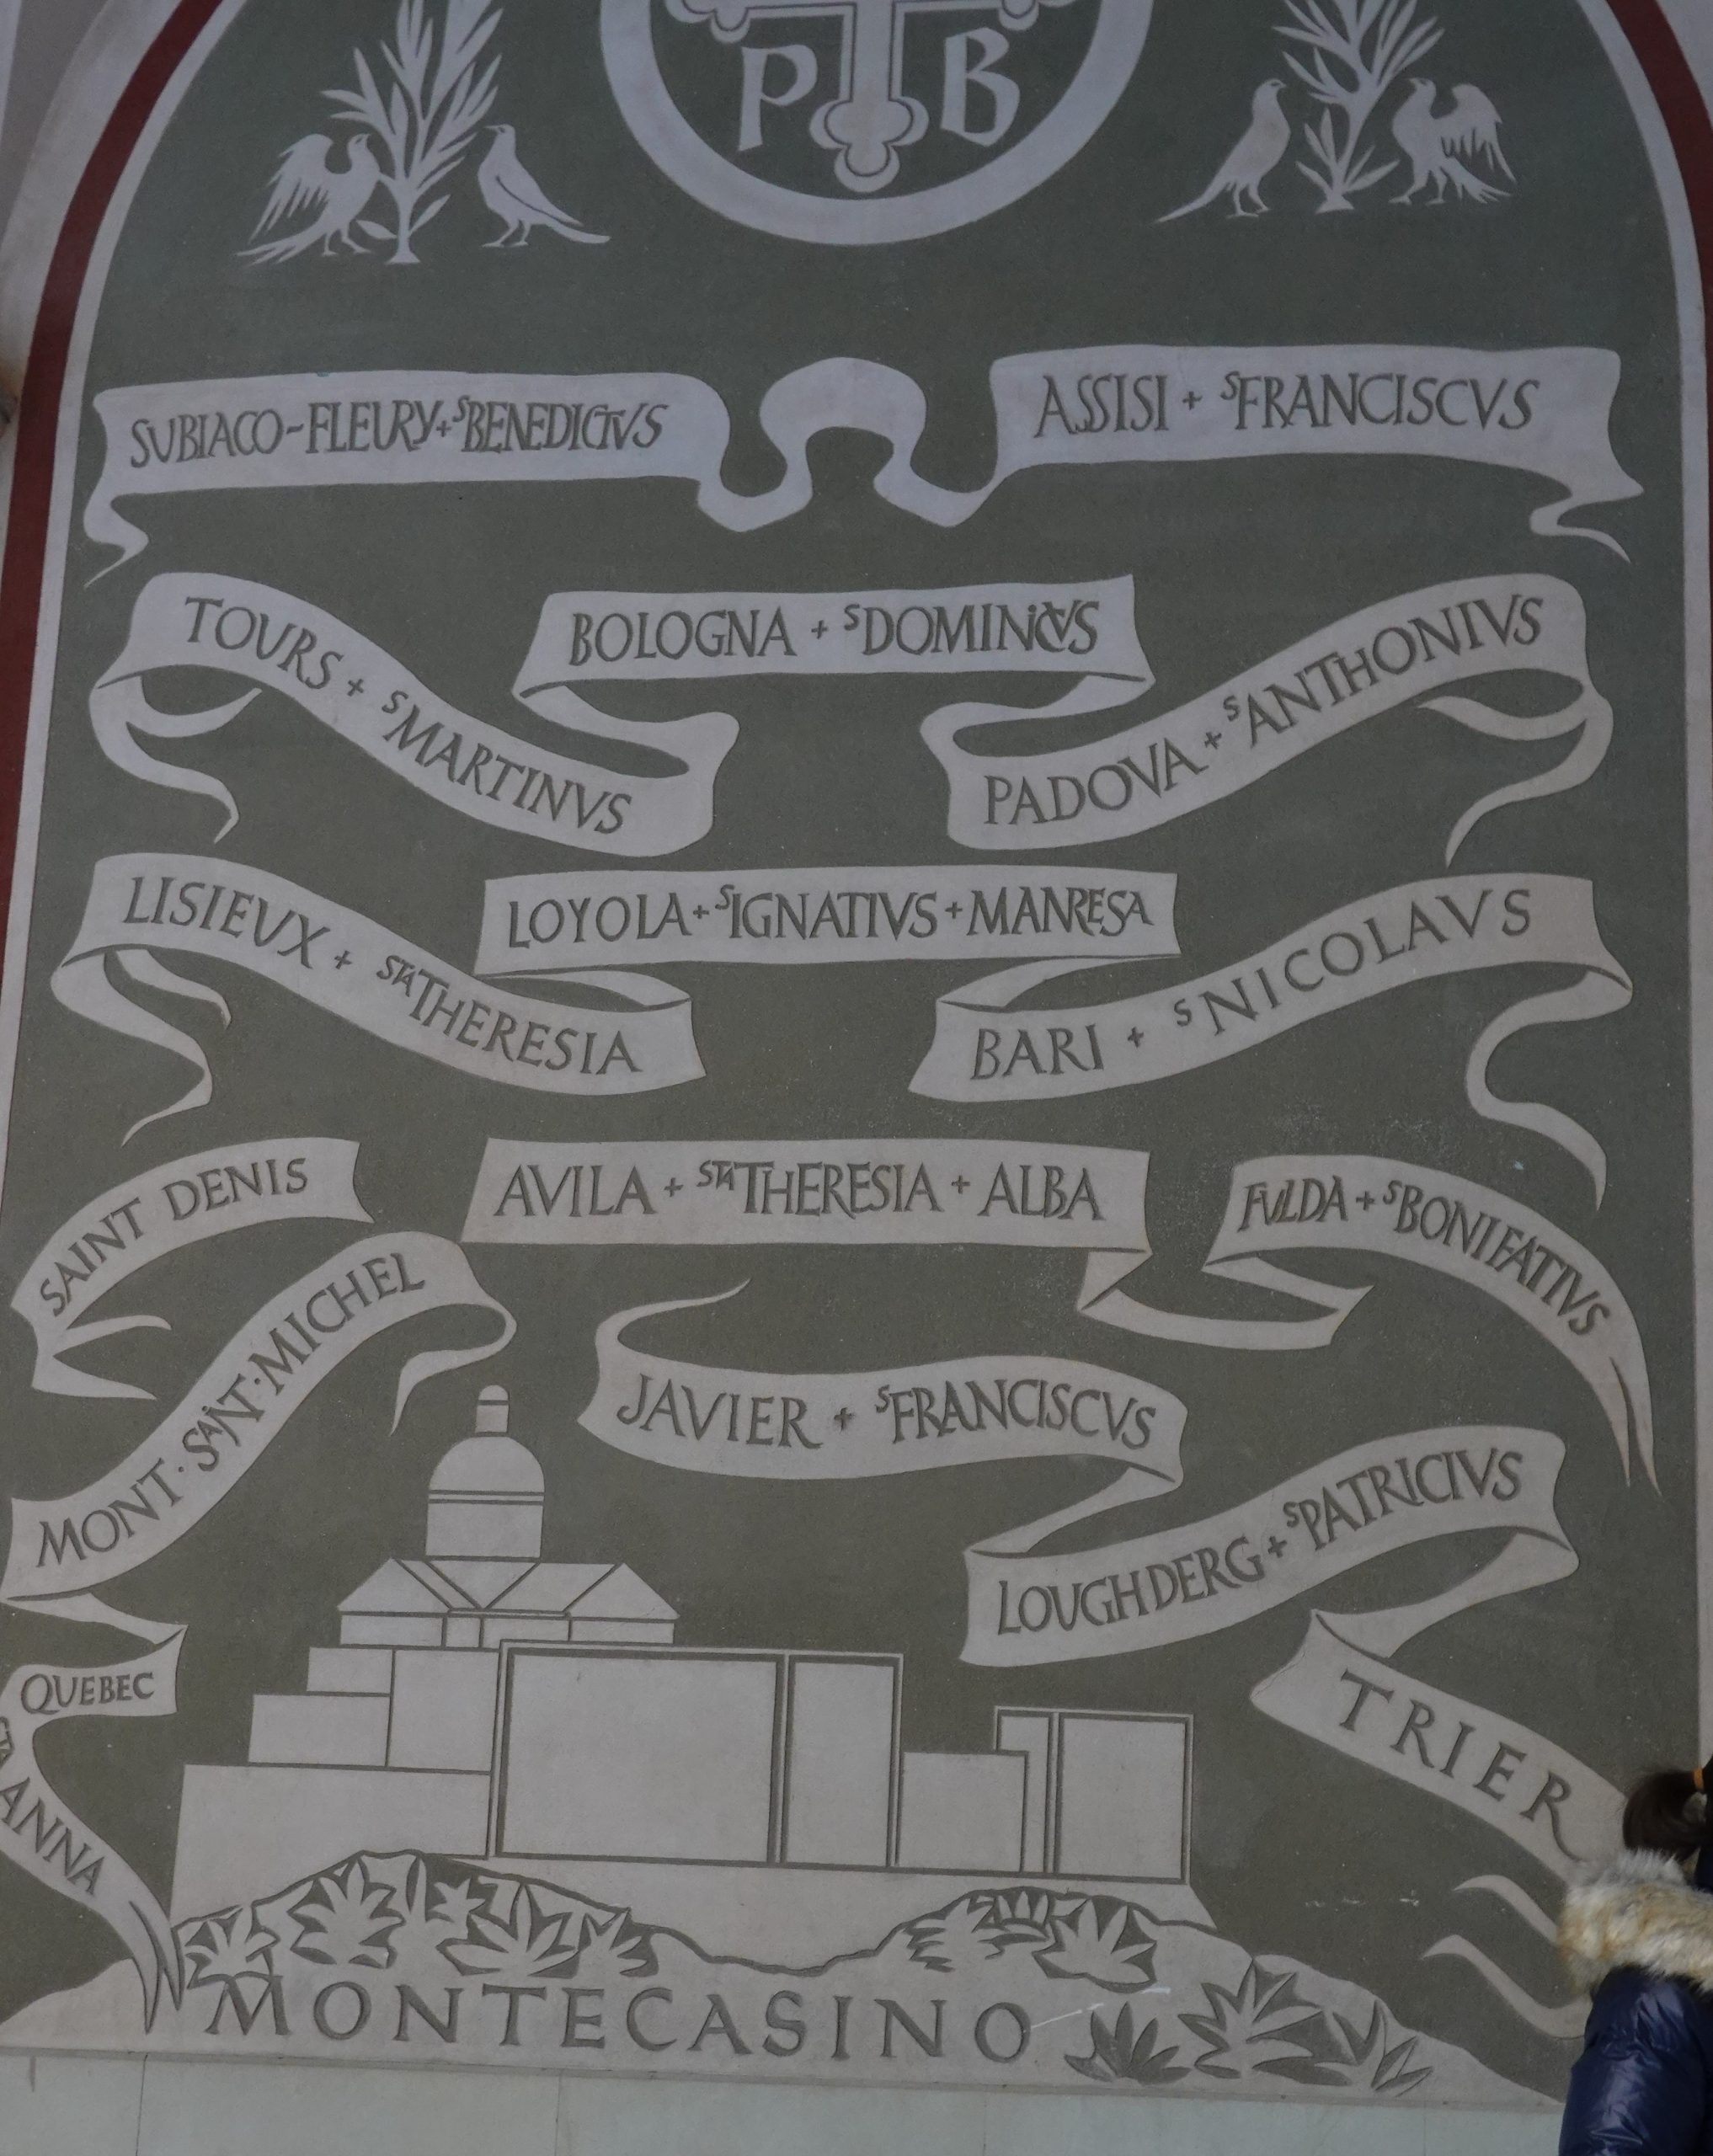 P B
SUBIACO-FLEURY+SBENEDICTVS
ASSISI + SFRANCISCVS
TOURS + SMARTINVS
BOLOGNA + SDOMINICVS
PADOVA + SANTHONIVS
LISIEVX + STATHERESIA
LOYOLA+SIGNATIVS+MANRESA
BARI + SNICOLAVS
SAINT DENIS
AVILA + STATHERESIA + ALBA
FULDA+SBONIFATIVS
MONT·SAINT·MICHEL
JAVIER + SFRANCISCVS
LOUGHDERG+SPATRICIVS
QUEBEC
STA ANNA
TRIER
MONTECASINO